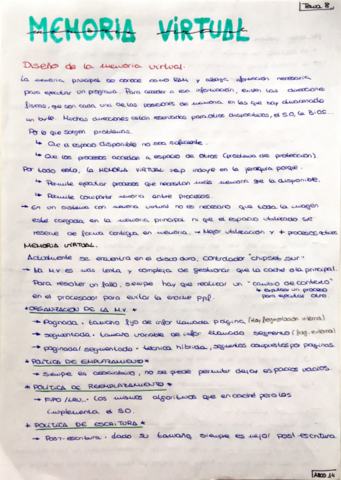 Tema 8
MEMORIA VIRTUAL
Diseño de la memoria virtual.
La memoria principal se conoce como RAM y alberga información necesaria
para ejecutar un programa. Para acceder a esa información, existen las direcciones
físicas, que son cada una de las posiciones de memoria en las que hay almacenado
un byte. Muchas direcciones están reservadas para otros dispositivos, el S.O, la BIOS...
Por lo que surgen problemas:
↳ Que el espacio disponible no sea suficiente.
↳ Que los procesos accedan a espacio de otros (problema de protección)
Por todo esto, la MEMORIA VIRTUAL se incluye en la jerarquía porque:
↳ Permite ejecutar procesos que necesitan más memoria que la disponible.
↳ Permite compartir memoria entre procesos.
→ En un sistema con memoria virtual no es necesario que toda la imagen
esté cargada en la memoria principal, ni que el espacio utilizado se
reserve de forma contigua en memoria. → Mejor utilización y + procesos activos
MEMORIA VIRTUAL.
Actualmente se encuentra en el disco duro, controlador "chipset sur"
→ La M.V es más lenta y compleja de gestionar que la caché o la principal.
Para resolver un fallo, siempre hay que realizar un "cambio de contexto"
en el procesador para evitar la enorme ppf.
↳ expulsar un proceso
para ejecutar otro.
* ORGANIZACIÓN DE LA M.V. *
→ Paginada: tamaño fijo de infor llamada página (hay fragmentación interna)
→ segmentada: tamaño variable de infor llamada segmento (frag. externa)
→ paginada/segmentada: técnica híbrida, segmentos compuestos por páginas.
* POLÍTICA DE EMPLAZAMIENTO *
→ siempre es asociativo, no se puede permitir dejar espacios vacíos.
* POLÍTICA DE REEMPLAZAMIENTO *
→ FIFO/LRU... Los mismos algoritmos que en caché pero los
implementa el S.O.
* POLÍTICA DE ESCRITURA *
→ Post-escritura: dado su tamaño, siempre es mejor post-escritura.
ARCO 14